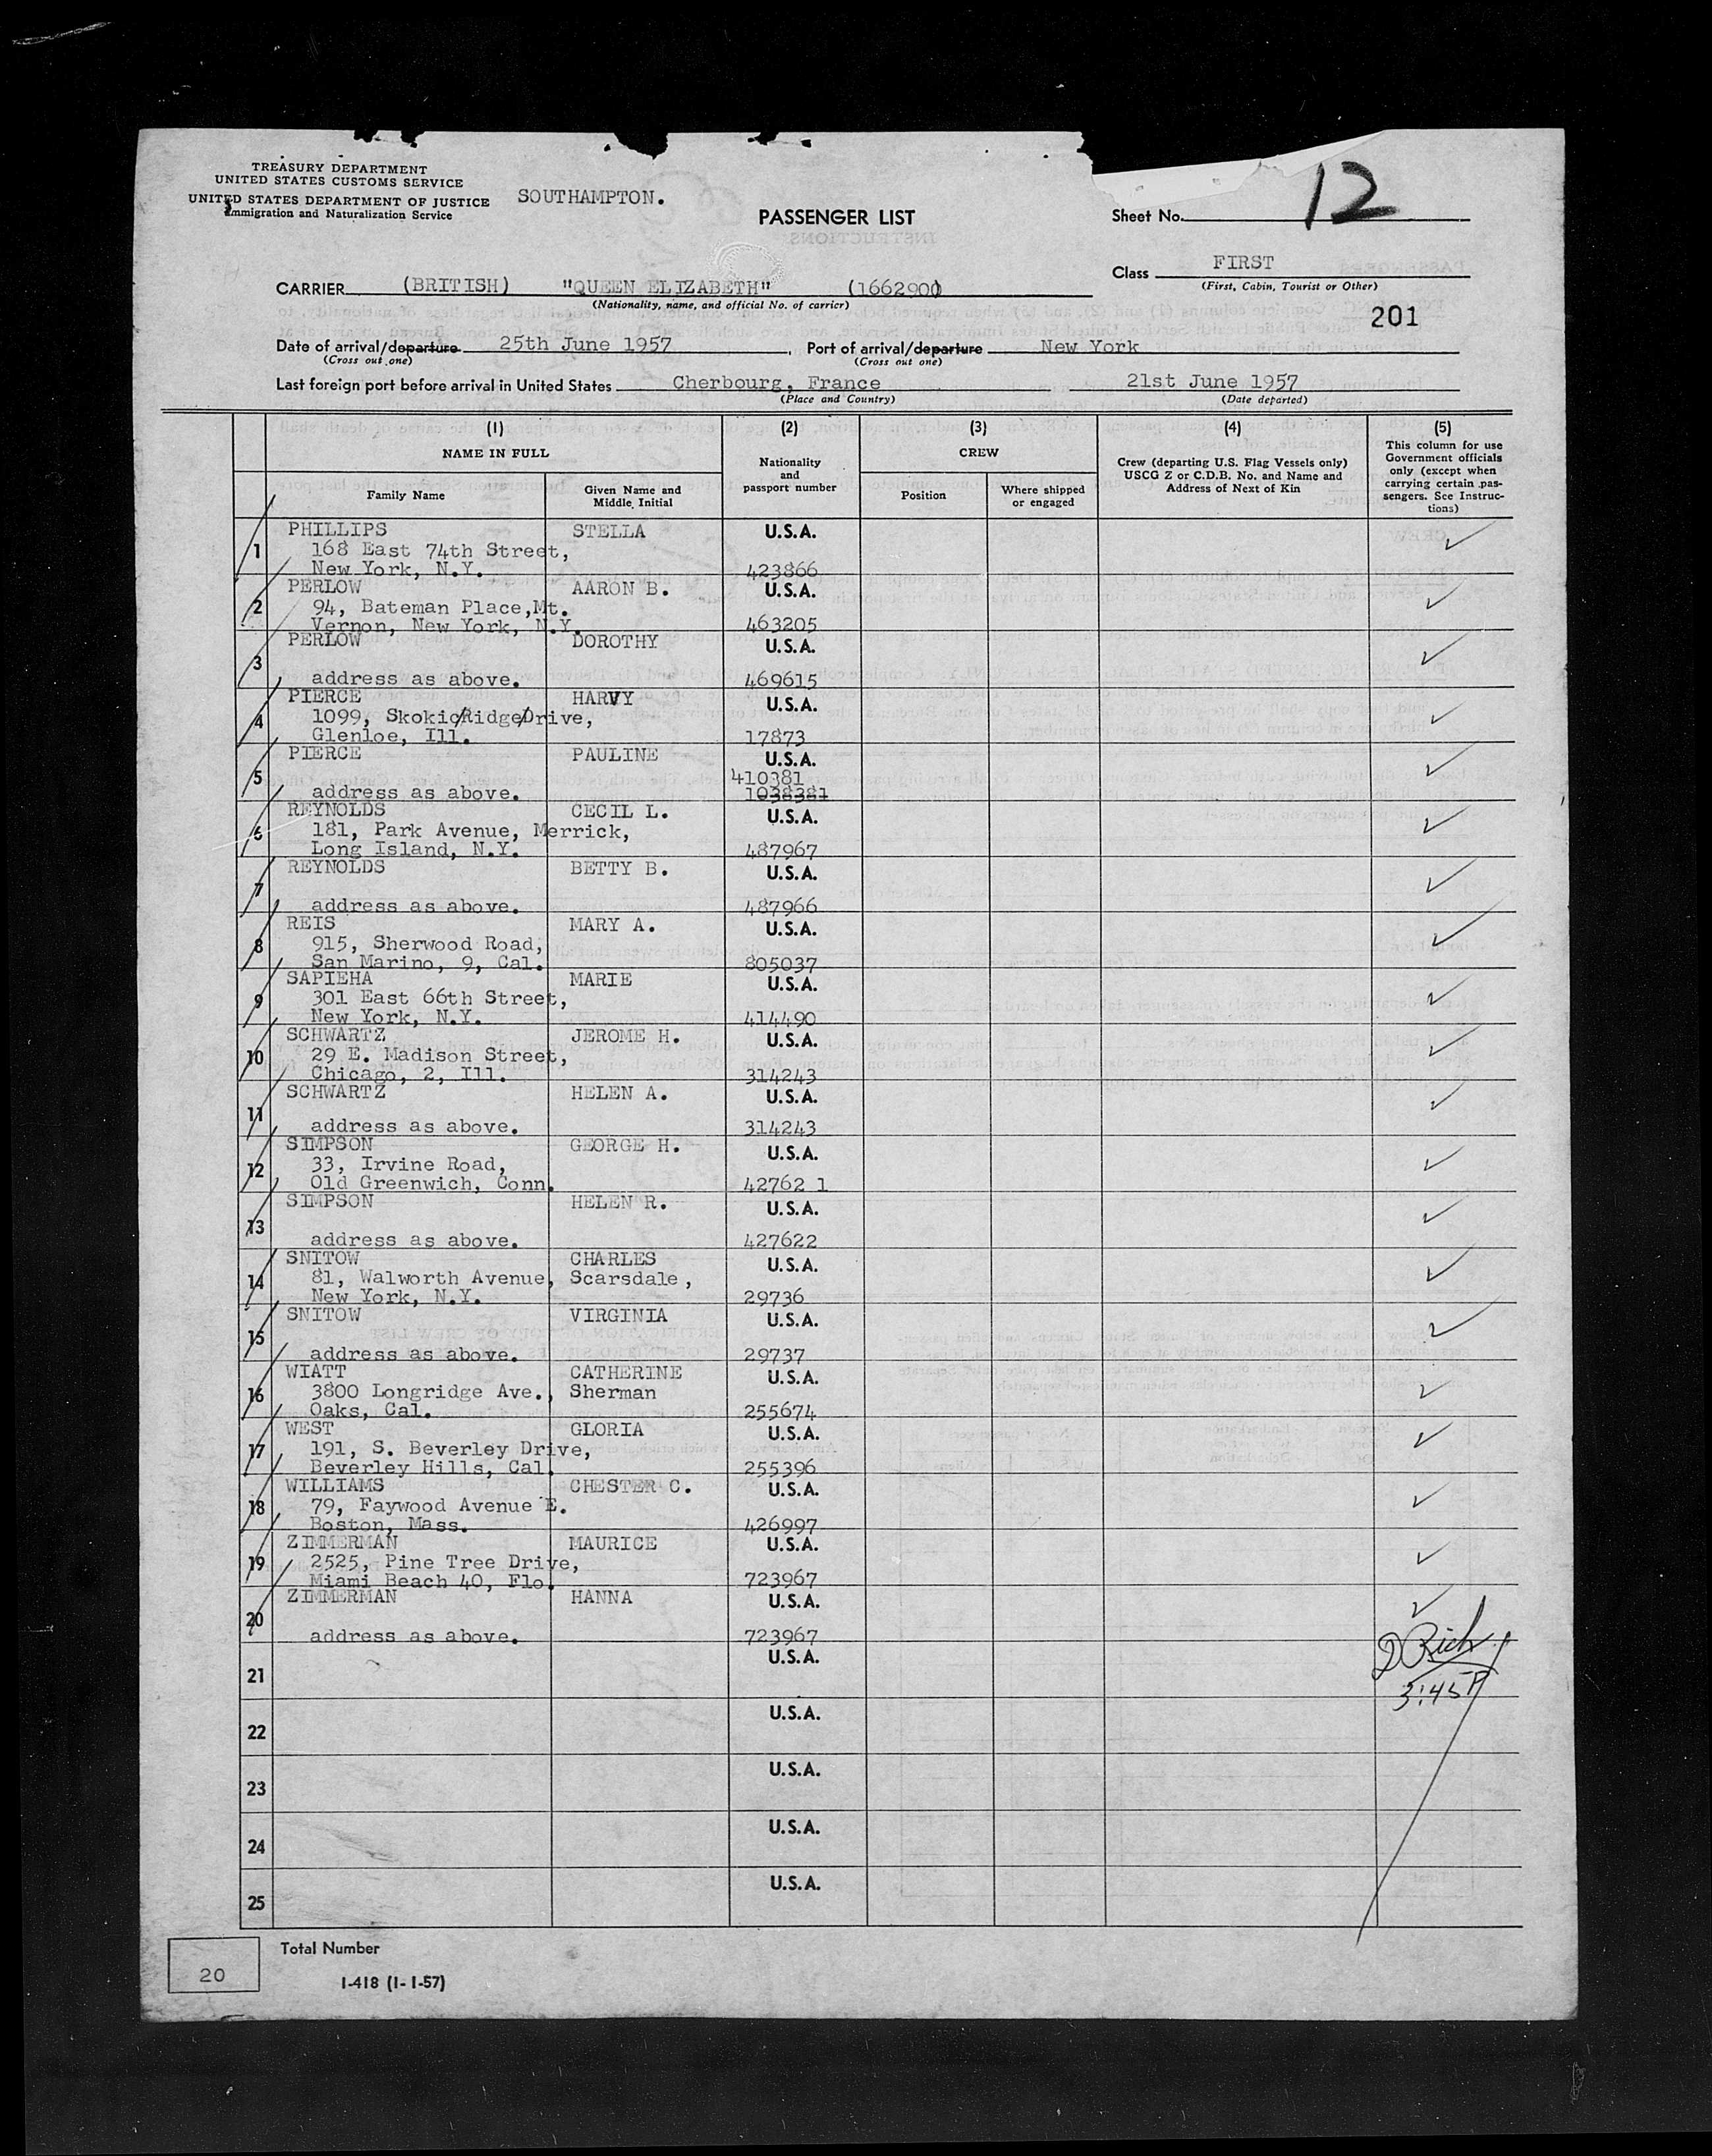 TREASURY DEPARTMENT
UNITED STATES CUSTOMS SERVICE
UNITED STATES DEPARTMENT OF JUSTICE
Immigration and Naturalization Service
SOUTHAMPTON.
PASSENGER LIST
Sheet No. 12
Class FIRST
(First, Cabin, Tourist or Other)
CARRIER (BRITISH) "QUEEN ELIZABETH" (166290)
(Nationality, name, and official No. of carrier)
201
Date of arrival/departure 25th June 1957, Port of arrival/departure New York
(Cross out one) (Cross out one)
Last foreign port before arrival in United States Cherbourg, France 21st June 1957
(Place and Country) (Date departed)
(1) (2) (3) (4) (5)
NAME IN FULL
Family Name
Given Name and
Middle Initial
Nationality
and
passport number
CREW
Position
Where shipped
or engaged
Crew (departing U.S. Flag Vessels only)
USCG Z or C.D.B. No. and Name and
Address of Next of Kin
This column for use
Government officials
only (except when
carrying certain pas-
sengers. See Instruc-
tions)
1 PHILLIPS STELLA U.S.A.
168 East 74th Street,
New York, N.Y. 423866
2 PERLOW AARON B. U.S.A.
94, Bateman Place, Mt.
Vernon, New York, N.Y. 463205
3 PERLOW DOROTHY U.S.A.
address as above. 469615
4 PIERCE HARVY U.S.A.
1099, Skokic/Ridge/Drive,
Glenloe, Ill. 17873
5 PIERCE PAULINE U.S.A.
410381
address as above. 1038381
6 REYNOLDS CECIL L. U.S.A.
181, Park Avenue, Merrick,
Long Island, N.Y. 487967
7 REYNOLDS BETTY B. U.S.A.
address as above. 487966
8 REIS MARY A. U.S.A.
915, Sherwood Road,
San Marino, 9, Cal. 805037
9 SAPIEHA MARIE U.S.A.
301 East 66th Street,
New York, N.Y. 414490
10 SCHWARTZ JEROME H. U.S.A.
29 E. Madison Street,
Chicago, 2, Ill. 314243
11 SCHWARTZ HELEN A. U.S.A.
address as above. 314243
12 SIMPSON GEORGE H. U.S.A.
33, Irvine Road,
Old Greenwich, Conn. 42762 1
13 SIMPSON HELEN R. U.S.A.
address as above. 427622
14 SNITOW CHARLES U.S.A.
81, Walworth Avenue, Scarsdale,
New York, N.Y. 29736
15 SNITOW VIRGINIA U.S.A.
address as above. 29737
16 WIATT CATHERINE U.S.A.
3800 Longridge Ave., Sherman
Oaks, Cal. 255674
17 WEST GLORIA U.S.A.
191, S. Beverley Drive,
Beverley Hills, Cal. 255396
18 WILLIAMS CHESTER C. U.S.A.
79, Faywood Avenue E.
Boston, Mass. 426997
19 ZIMMERMAN MAURICE U.S.A.
2525, Pine Tree Drive,
Miami Beach 40, Flo. 723967
20 ZIMMERMAN HANNA U.S.A.
address as above. 723967
D Rich
21 U.S.A.
3:45 P
22 U.S.A.
23 U.S.A.
24 U.S.A.
25 U.S.A.
Total Number
20
I-418 (1-1-57)